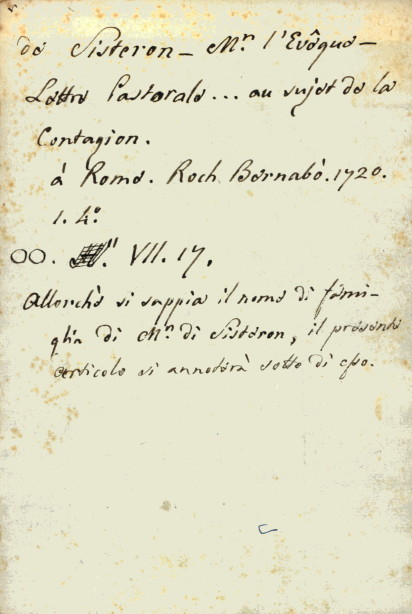 de Sisteron – Mr. l'Evêque –
Lettre Pastorale ... au sujet de la
Contagion.
à Rome. Roch Bernabò. 1720.
1. 4.º
OO. VII. 17.
Allorchè si sappia il nome di fami-
glia di Mr. di Sisteron, il presente
articolo si annoterà sotto di esso.